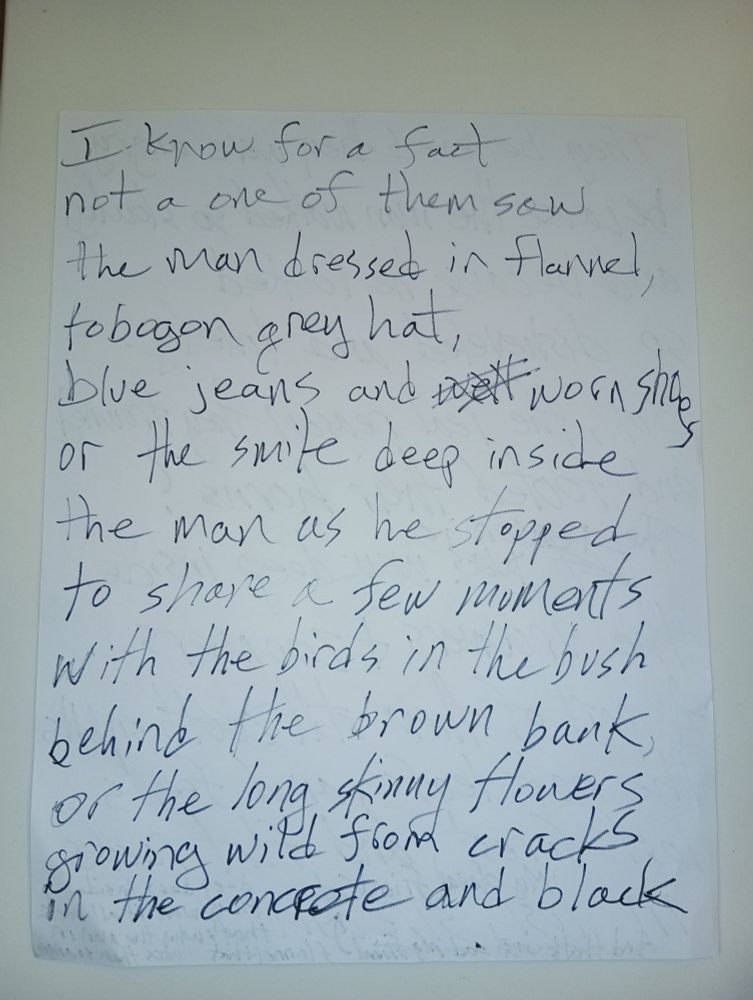 I know for a fact
not a one of them saw
the man dressed in flannel,
tobogon grey hat,
blue jeans and worn shoes
or the smile deep inside
the man as he stopped
to share a few moments
with the birds in the bush
behind the brown bank,
or the long skinny flowers
growing wild from cracks
in the concrete and black